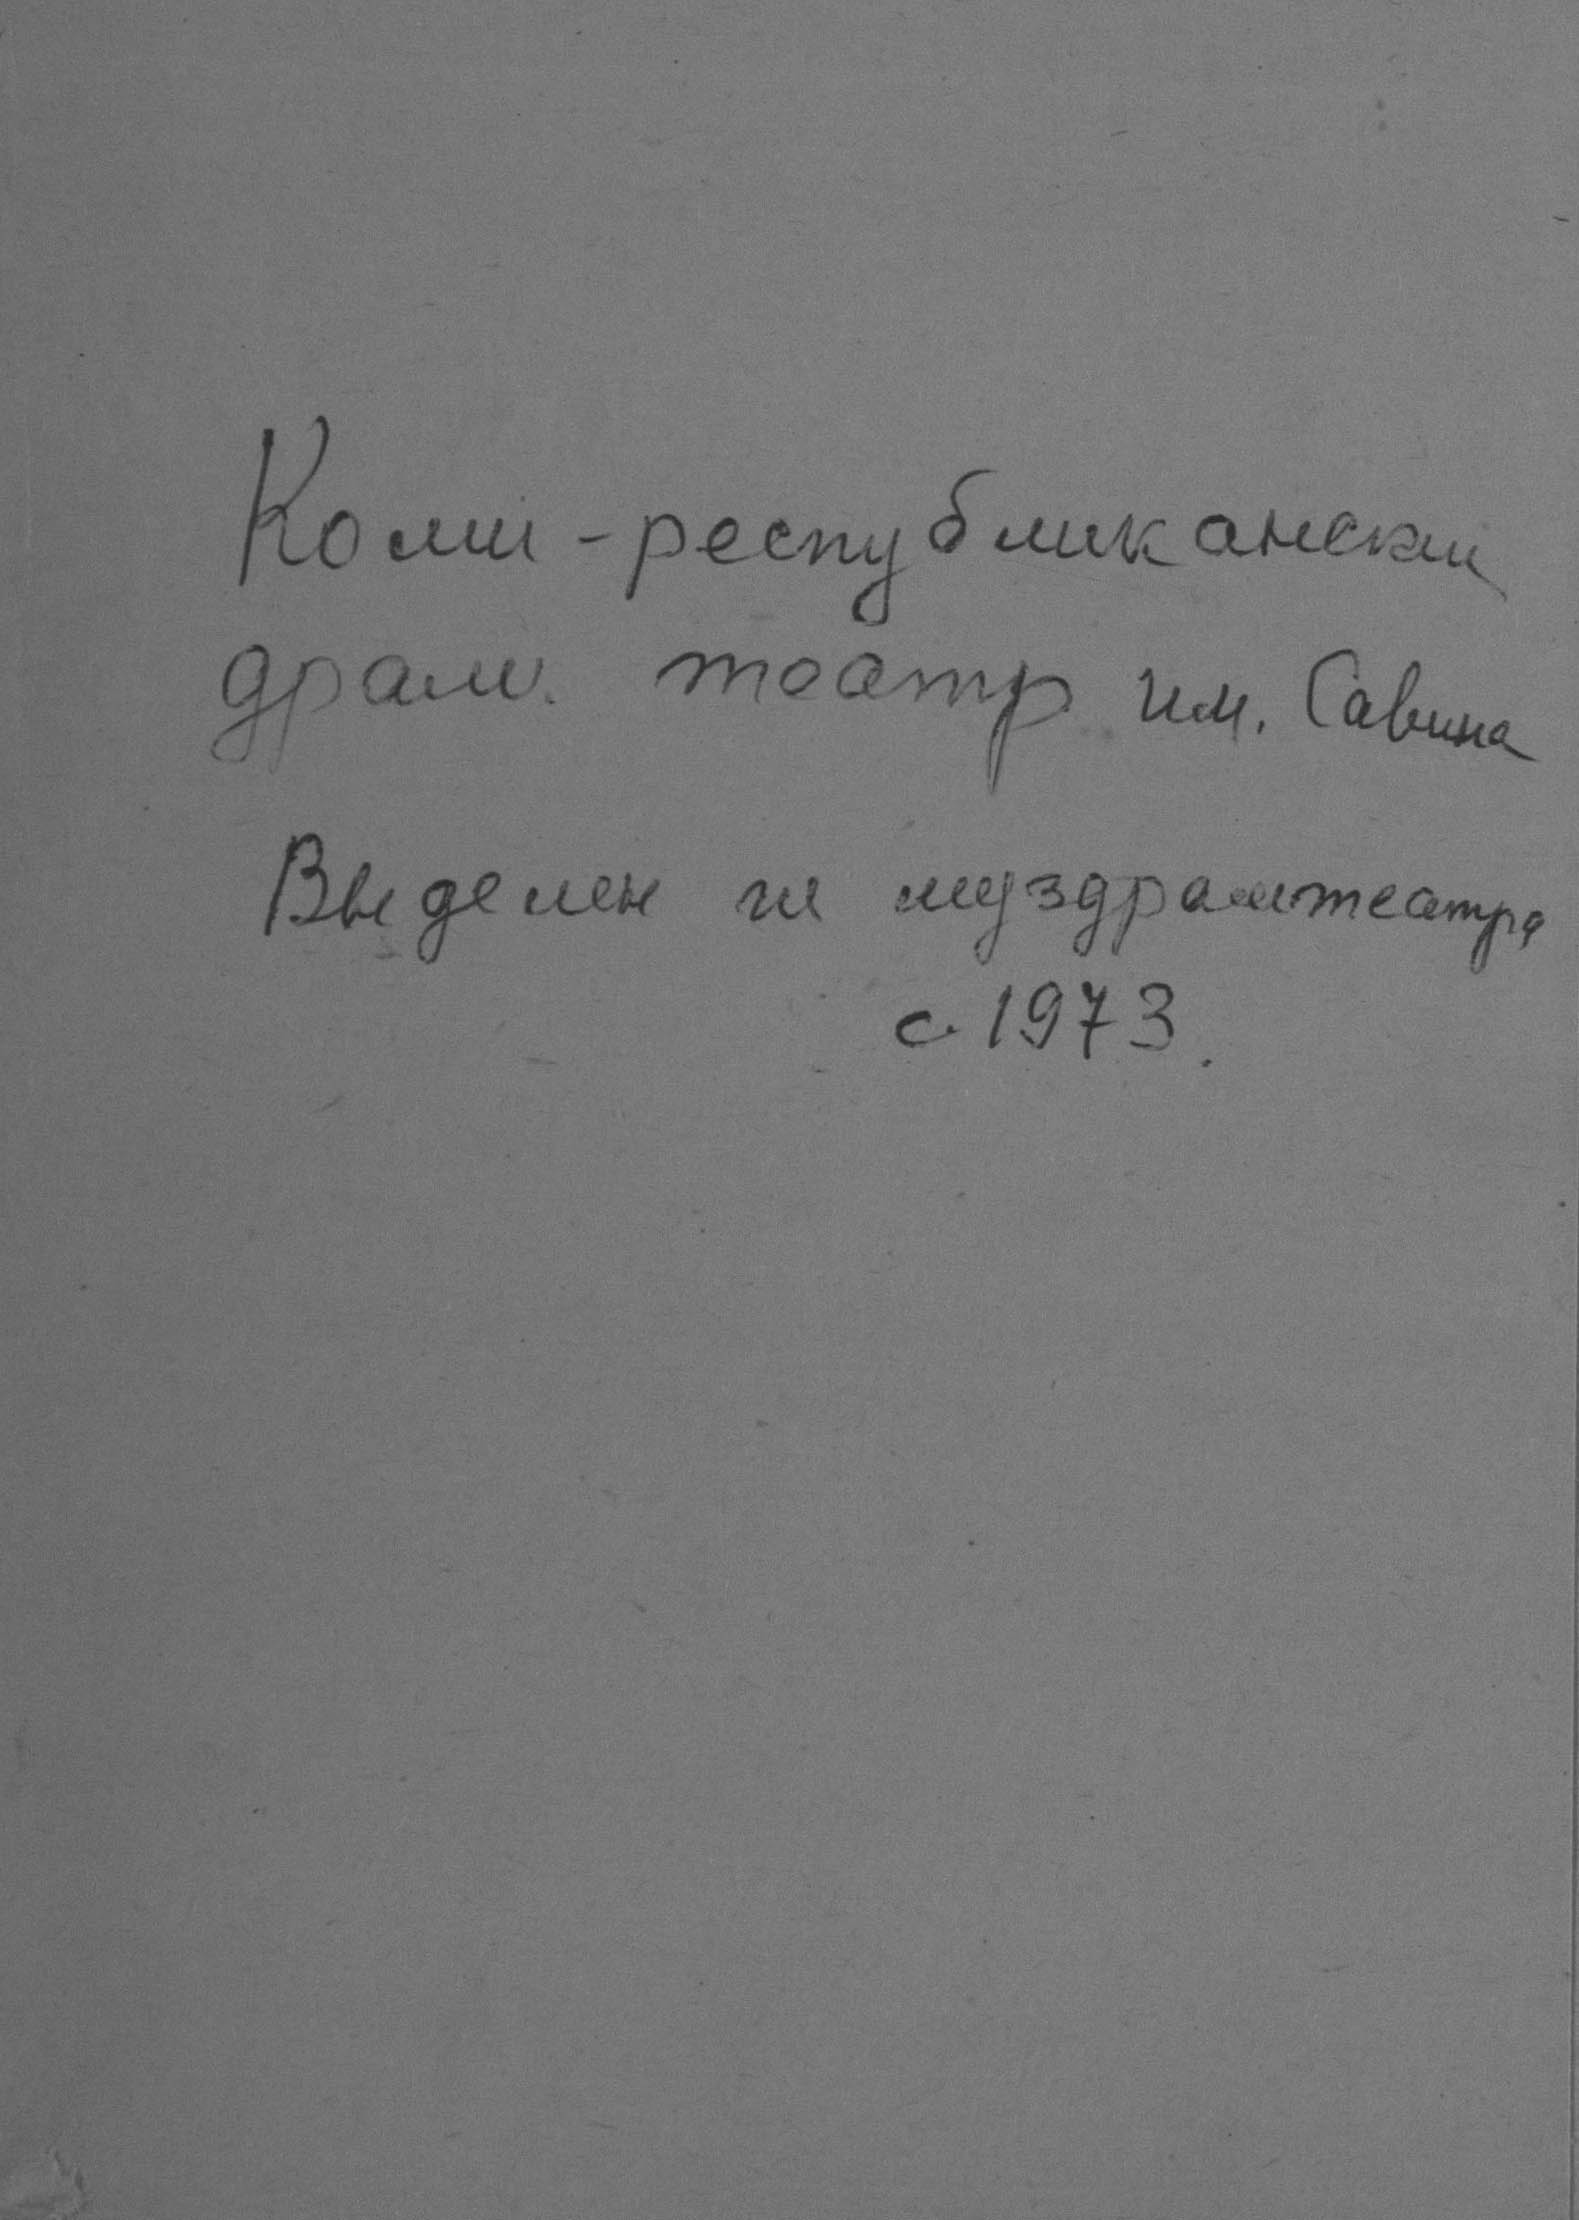 Коми-республикански
драм. театр им. Савина
Выделен из муздрамтеатра
с 1973.